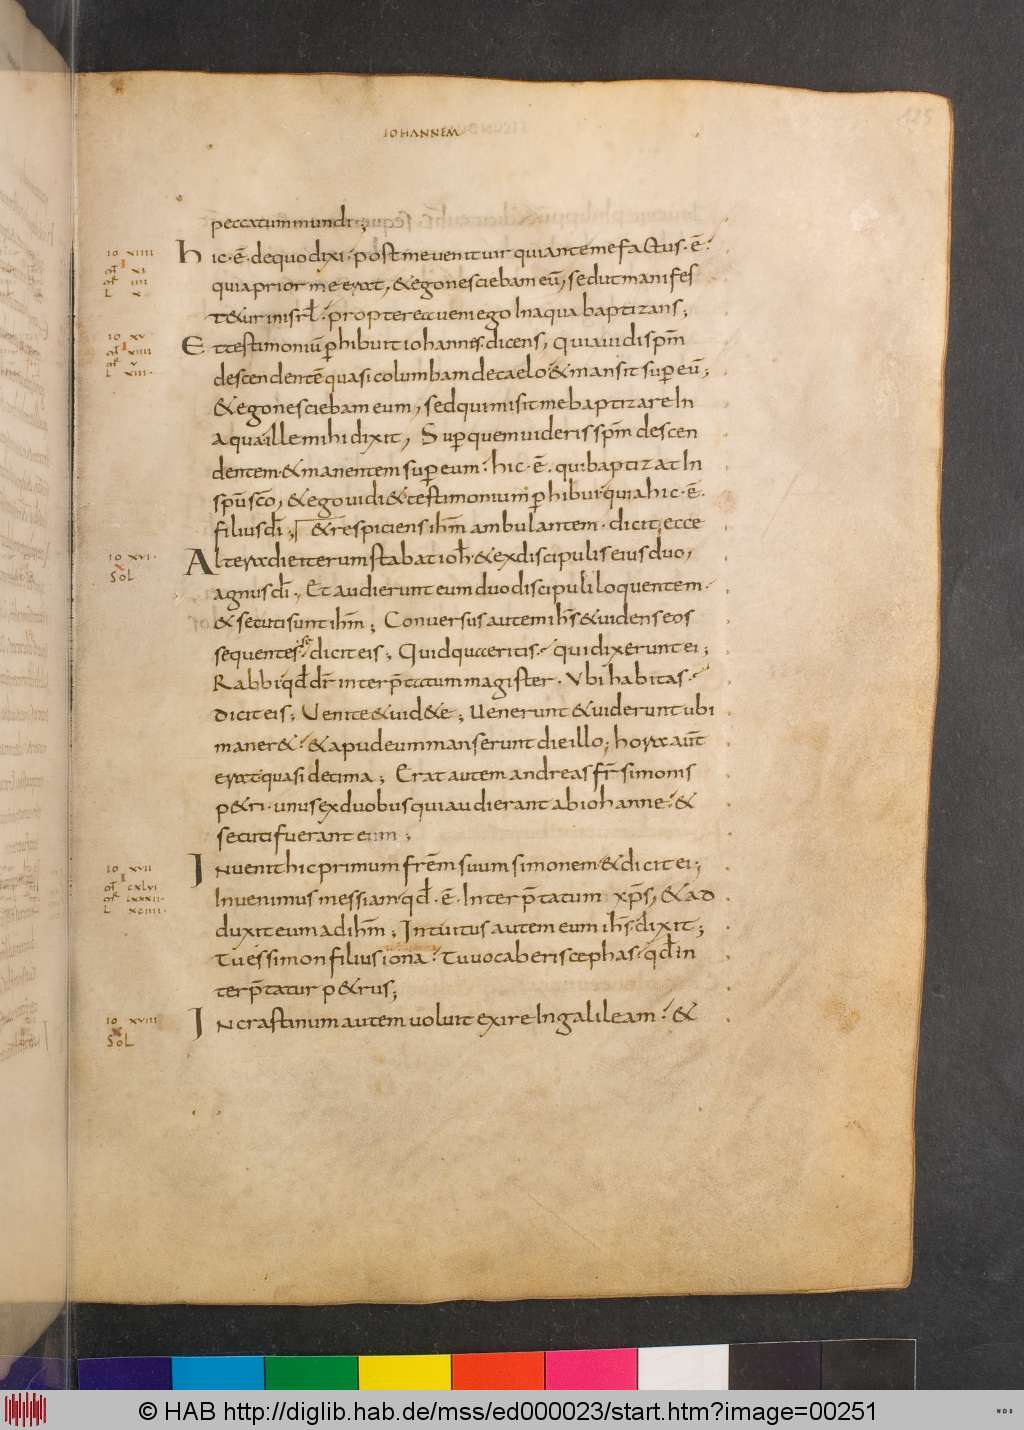 125
IOHANNEM
peccatum mundi;
IO XIIII
hic · ē · de quo dixi · post me uenit uir qui ante me factus · ē ·
MT XI
MR IIII
L X
quia prior me erat, & ego nesciebam eū, sed ut manifes
t&ur in isrł · propterea ueni ego In aqua baptizans;
IO XV
Et testimoniū perhibuit iohannes · dicens, quia uidi spm̄
MT XIIII
MR V
L XIII
descendentē quasi columbam de caelo & mansit super eū;
& ego nesciebam eum, sed qui misit me baptizare In
aqua ille mihi dixit, Super quem uideris spm̄ descen
dentem · & manentem super eum · hic · ē · qui baptizat In
spū sco, & ego uidi & testimonium perhibui quia hic · ē ·
filius dī; & respiciens ihm̄ ambulantem · dicit ecce
IO XVI
SOL
Altera die iterum stabat ioh̄ · & ex discipulis eius duo,
agnus dī; Et audierunt eum duo discipuli loquentem ·
& secuti sunt ihm̄; Conuersus autem ihs̄ & uidens eos
sequentes se dicit eis; Quid quaeritis · qui dixerunt ei;
Rabbi qđ dr̄ interp̄tatum magister · Vbi habitas ·
Dicit eis; Uenite & uid&e; Uenerunt & uiderunt ubi
maner& · & apud eum manserunt die illo; hora aūt
erat quasi decima; Erat autem andreas fr̄ simonis
p&ri · unus ex duobus qui audierant ab iohanne · &
secuti fuerant eum;
IO XVII
Inuenit hic primum frēm suum simonem · & dicit ei;
MT CXLVI
MR LXXXII
L XCIIII
Inuenimus messiam · qđ · ē · Interp̄tatum xps̄, & ad
duxit eum ad ihm̄; Intuitus autem eum ihs̄ · dixit;
Tu es simon filius iona · Tu uocaberis cephas · qđ in
terp̄tatur p&rus;
IO XVIII
SOL
In crastinum autem uoluit exire In galileam · &
© HAB http://diglib.hab.de/mss/ed000023/start.htm?image=00251
WDB